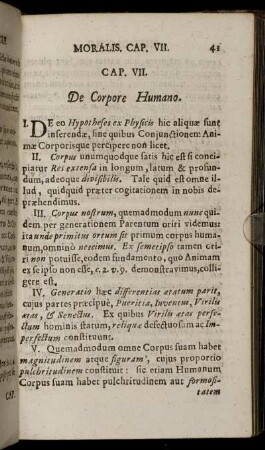 MORALIS. CAP. VII. 41
CAP. VII.
De Corpore Humano.
I. DE eo Hypotheses ex Physicis hic aliquæ sunt
inserendæ, sine quibus Conjunctionem Ani-
mæ Corporisque percipere non licet.
II. Corpus unumquodque satis hic est si conci-
piatur Res extensa in longum, latum & profun-
dum, adeoque divisibilis. Tale quid est omne il-
lud, quidquid præter cogitationem in nobis de-
præhendimus.
III. Corpus nostrum, quemadmodum nunc qui-
dem per generationem Parentum oriri videmus:
ita unde primitus ortum sit primum corpus huma-
num, omnino nescimus. Ex semetipso tamen ori-
ri non potuisse, eodem fundamento, quo Animam
ex se ipso non esse, c. 2. §. 9. demonstravimus, colli-
gere est.
IV. Generatio hæc differentias ætatum parit,
cujus partes præcipuè, Pueritia, Juventus, Virilis
ætas, & Senectus. Ex quibus Virilis ætas perfe-
ctum hominis statum, reliquæ defectuosum ac Im-
perfectum constituunt.
V. Quemadmodum omne Corpus suam habet
magnitudinem atque figuram, cujus proportio
pulchritudinem constituit: sic etiam Humanum
Corpus suam habet pulchritudinem aut formosi-
tatem